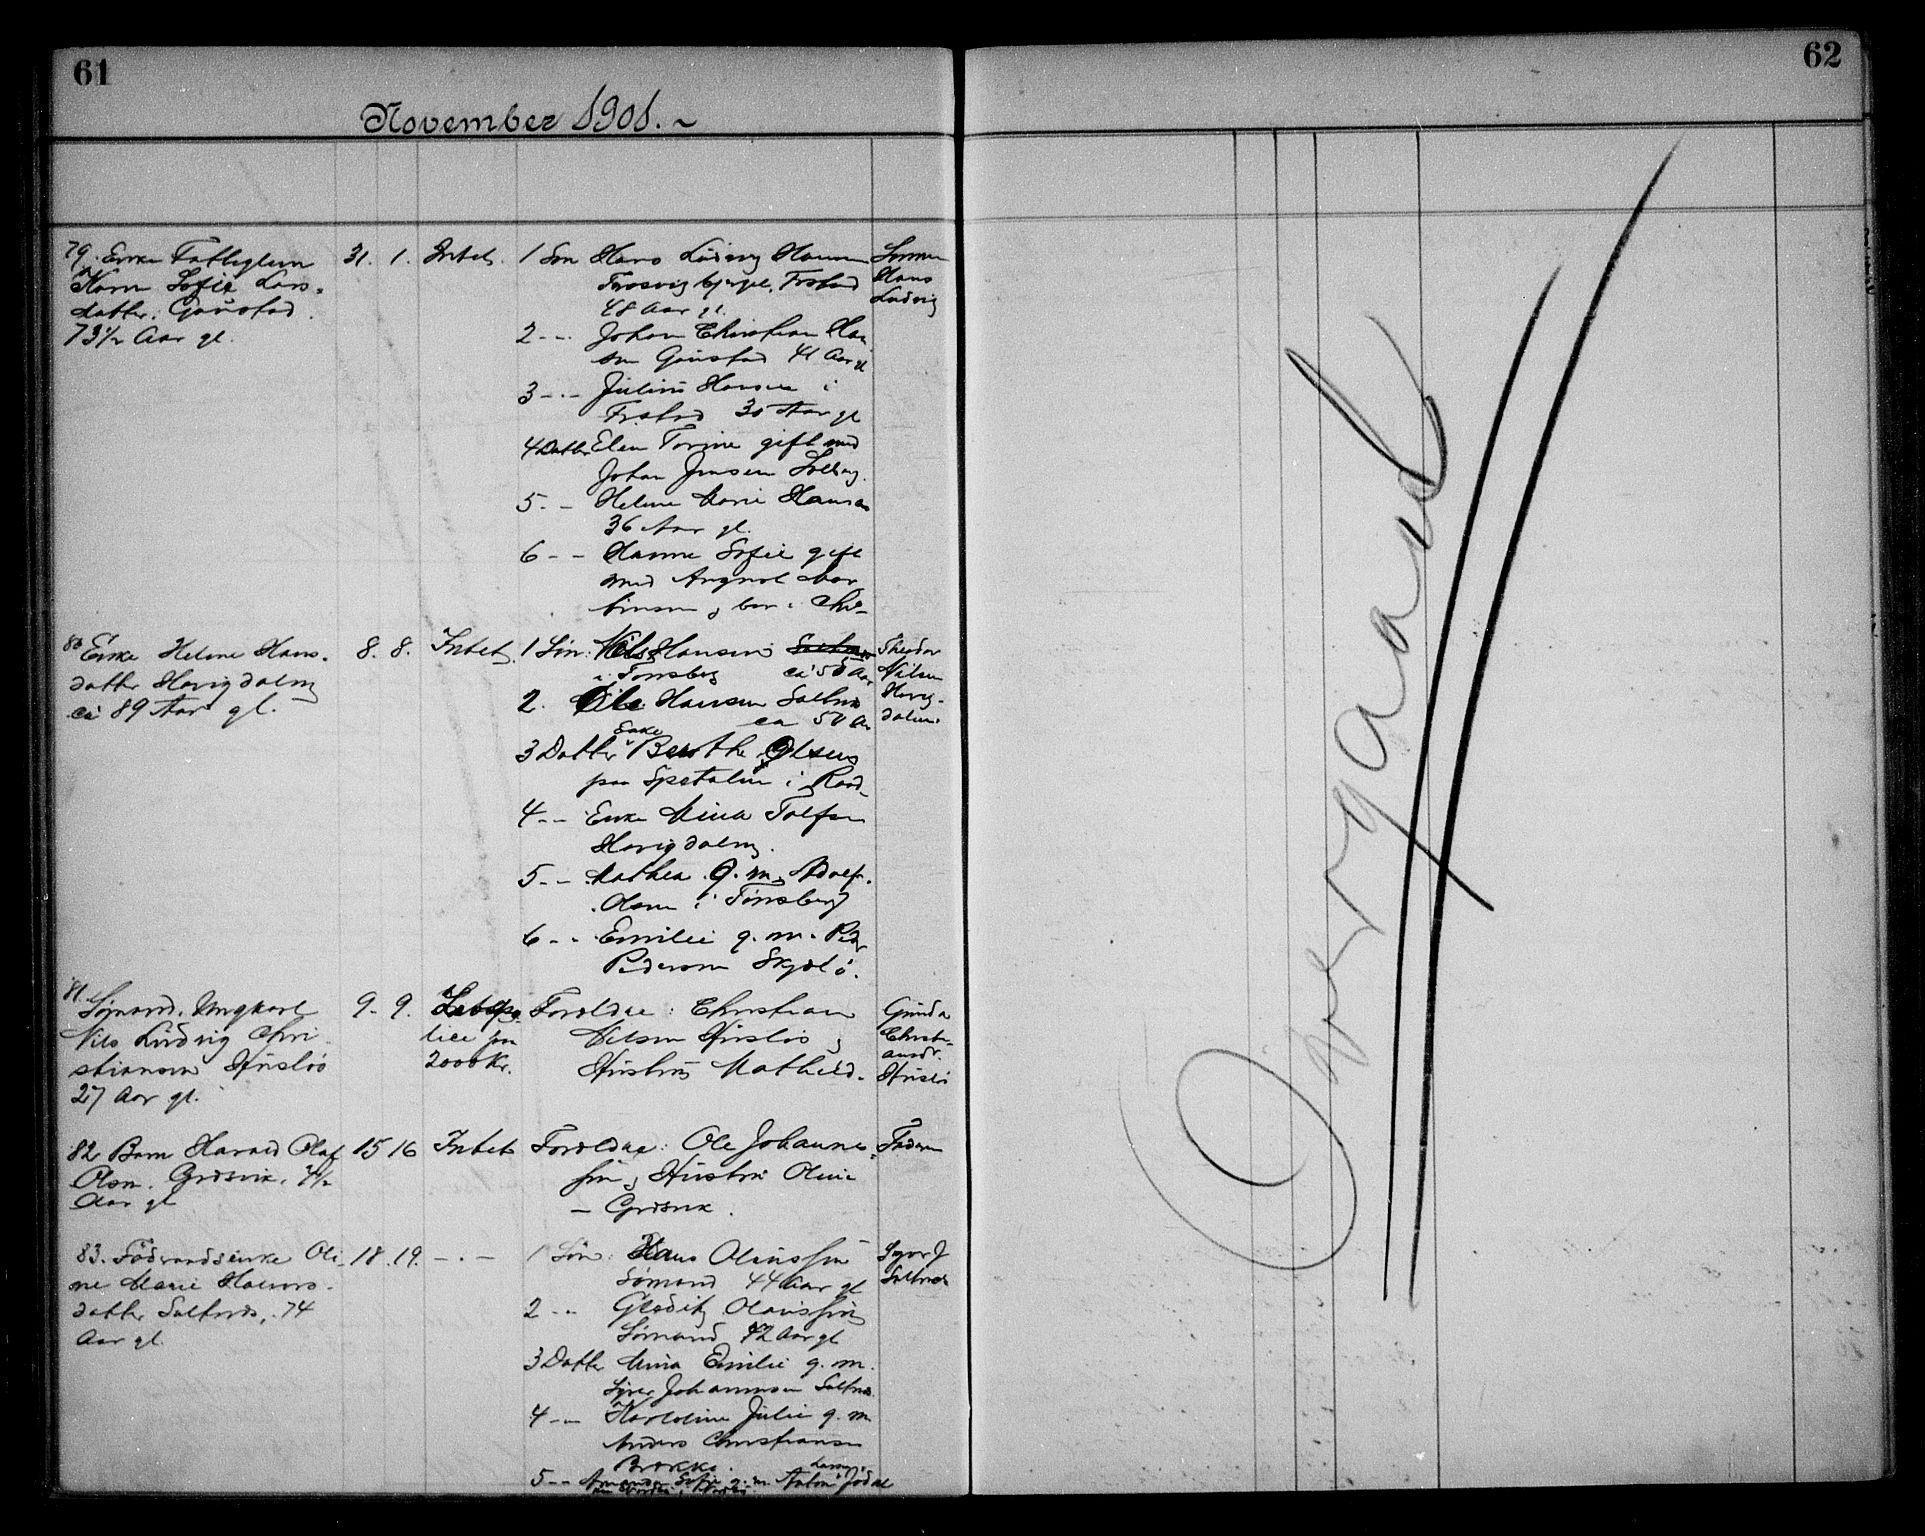 61
62
November 1901.
79. Enke Fattiglem
Karn Sofie Lars-
datter, Gaustad.
73½ Aar gl.
31. 1. Intet.
1 Søn Hans Ludvig Hansen
Frestad
48 Aar gl.
2 - - Johan Christian Han
sen Gaustad 41 Aar gl
3 - - Julius Hansen i
Frestad 30 Aar gl
4 Datter Elen Torine gift med
Johan Jensen
5 - - Helene Marie Hansen
36 Aar gl.
6 - - Hanne Sofie gift
med August Mar
tinsen, bor i Chr-
Sønnen
Hans
Ludvig
80 Enke Helene Hans-
datter Havigdalen
ca 89 Aar gl.
8. 8. Intet.
1 Søn: Nils Hansen
i Tønsberg ca 50 Aar
2. Ole Hansen Saltnes
ca 50 Aar
3 Datter Enke Berthe Olsen
paa Spetalen i Raad-
4 - - Enke Mina Tolfsen
Havigdalen.
5 - - Mathea g. m. Adolf
Olsen i Tønsberg
6 - - Emilie g. m. Peder
Pedersen
Theodor
Nilsen
Havig-
dalen.
81. Sømand, Ungkarl
Nils Ludvig Chri
stiansen Husløs
27 Aar gl.
9. 9.
lice paa
2000 Kr.
Foreldre: Christian
Nilsen Husløs,
Hustru Mathild-
Gunda
Christi-
ansdr.
82 Barn Harald Olaf
Olsen. Grøsvik, ½
Aar gl
15 16 Intet
Foreldre: Ole Johannes-
sen, Hustru Oline
- Grøsvik.
Faderen
83. Fødraadsenke Oli-
ne Marie Halvors-
datter Saltnes, 74
Aar gl.
18. 19. - . -
1 Søn: Hans Olaussen
Sømand 44 Aar gl
2 - - Olaussen
Sømand 42 Aar gl
3 Datter Mina Emilie g. m.
Syver Johannesen Saltnes.
4 - - Karoline Julie g. m
Anders Christiansen
5 - - Sofie g. m. Anton
Syver J
Saltnes
Overgaard